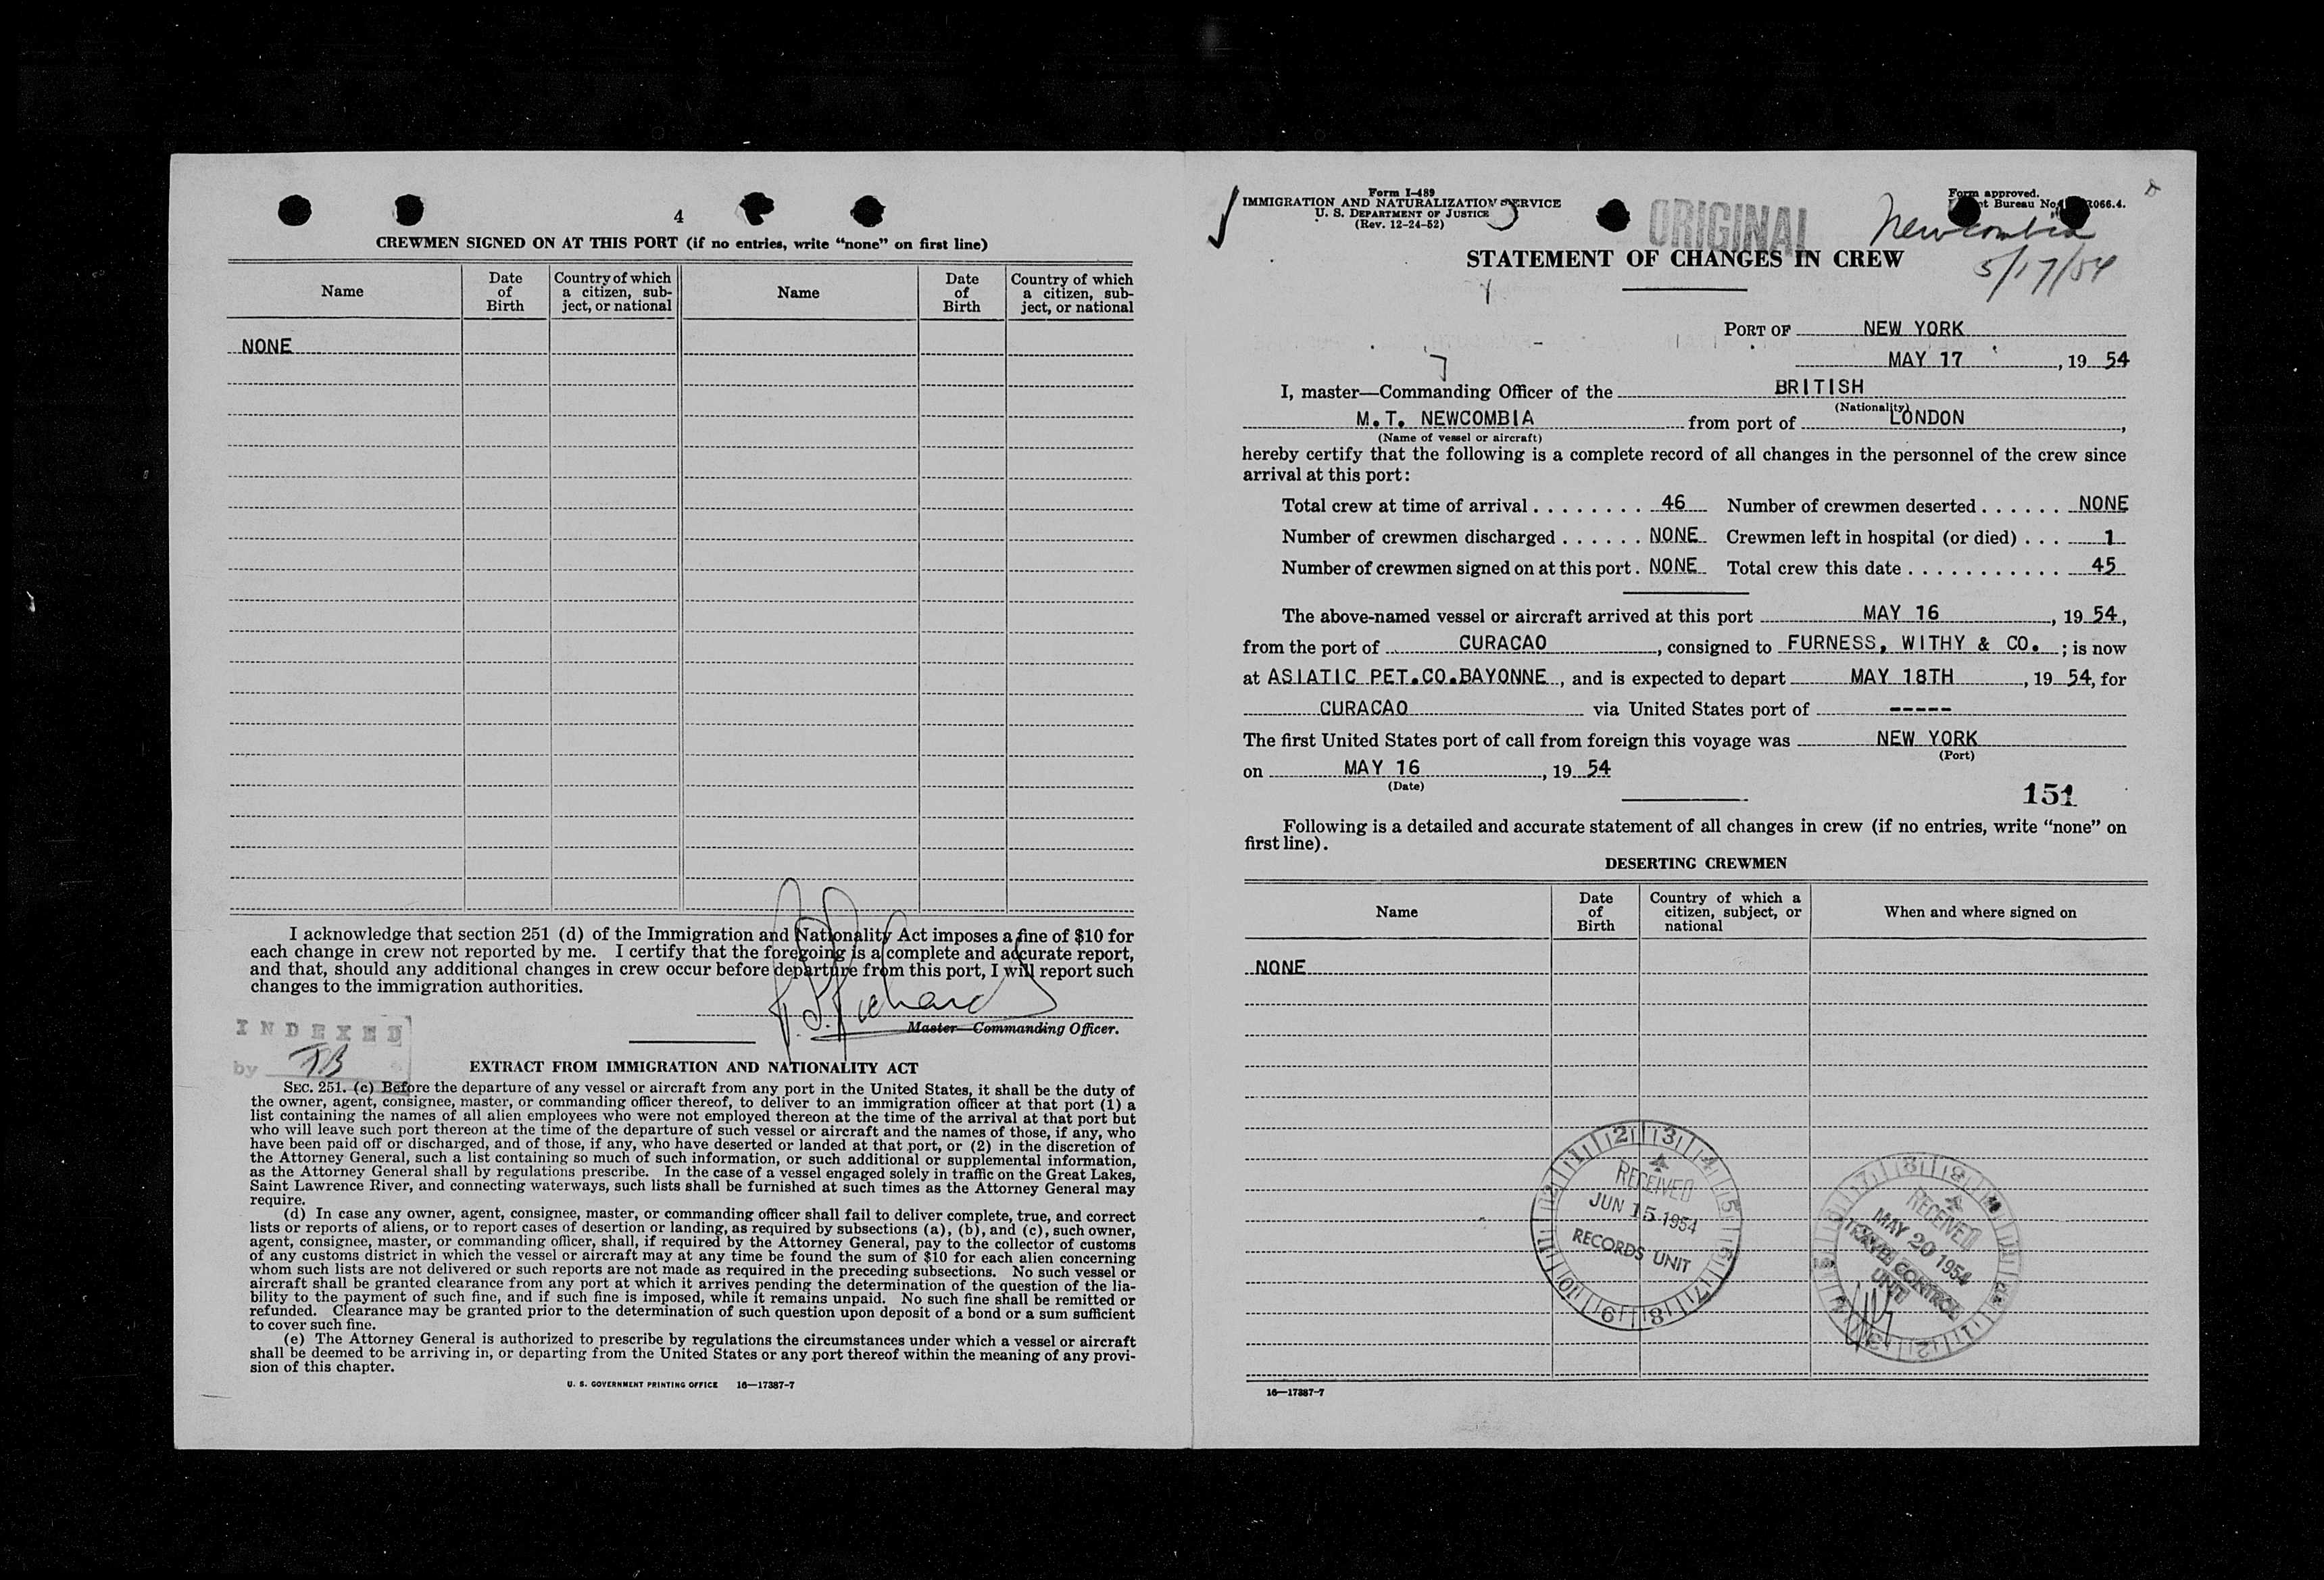 4
CREWMEN SIGNED ON AT THIS PORT (if no entries, write “none” on first line)
Name
Date of Birth
Country of which a citizen, subject, or national
Name
Date of Birth
Country of which a citizen, subject, or national
NONE
I acknowledge that section 251 (d) of the Immigration and Nationality Act imposes a fine of $10 for
each change in crew not reported by me. I certify that the foregoing is a complete and accurate report,
and that, should any additional changes in crew occur before departure from this port, I will report such
changes to the immigration authorities.
Master—Commanding Officer.
INDEXED
by TB
EXTRACT FROM IMMIGRATION AND NATIONALITY ACT
SEC. 251. (c) Before the departure of any vessel or aircraft from any port in the United States, it shall be the duty of
the owner, agent, consignee, master, or commanding officer thereof, to deliver to an immigration officer at that port (1) a
list containing the names of all alien employees who were not employed thereon at the time of the arrival at that port but
who will leave such port thereon at the time of the departure of such vessel or aircraft and the names of those, if any, who
have been paid off or discharged, and of those, if any, who have deserted or landed at that port, or (2) in the discretion of
the Attorney General, such a list containing so much of such information, or such additional or supplemental information,
as the Attorney General shall by regulations prescribe. In the case of a vessel engaged solely in traffic on the Great Lakes,
Saint Lawrence River, and connecting waterways, such lists shall be furnished at such times as the Attorney General may
require.
(d) In case any owner, agent, consignee, master, or commanding officer shall fail to deliver complete, true, and correct
lists or reports of aliens, or to report cases of desertion or landing, as required by subsections (a), (b), and (c), such owner,
agent, consignee, master, or commanding officer, shall, if required by the Attorney General, pay to the collector of customs
of any customs district in which the vessel or aircraft may at any time be found the sum of $10 for each alien concerning
whom such lists are not delivered or such reports are not made as required in the preceding subsections. No such vessel or
aircraft shall be granted clearance from any port at which it arrives pending the determination of the question of the lia-
bility to the payment of such fine, and if such fine is imposed, while it remains unpaid. No such fine shall be remitted or
refunded. Clearance may be granted prior to the determination of such question upon deposit of a bond or a sum sufficient
to cover such fine.
(e) The Attorney General is authorized to prescribe by regulations the circumstances under which a vessel or aircraft
shall be deemed to be arriving in, or departing from the United States or any port thereof within the meaning of any provi-
sion of this chapter.
U. S. GOVERNMENT PRINTING OFFICE 16—17387-7
Form I-489
IMMIGRATION AND NATURALIZATION SERVICE
U. S. DEPARTMENT OF JUSTICE
(Rev. 12-24-52)
ORIGINAL
Form approved.
Bureau No. R066.4.
Newcombia
5/17/54
STATEMENT OF CHANGES IN CREW
PORT OF NEW YORK
MAY 17, 19 54
I, master—Commanding Officer of the BRITISH
(Nationality)
M.T. NEWCOMBIA from port of LONDON,
(Name of vessel or aircraft)
hereby certify that the following is a complete record of all changes in the personnel of the crew since
arrival at this port:
Total crew at time of arrival . . . . . . . . 46 Number of crewmen deserted . . . . . . NONE
Number of crewmen discharged . . . . . . NONE Crewmen left in hospital (or died) . . . 1
Number of crewmen signed on at this port . NONE Total crew this date . . . . . . . . . . . . 45
The above-named vessel or aircraft arrived at this port MAY 16, 19 54,
from the port of CURACAO, consigned to FURNESS, WITHY & CO. ; is now
at ASIATIC PET.CO.BAYONNE, and is expected to depart MAY 18TH, 19 54, for
CURACAO via United States port of -----
The first United States port of call from foreign this voyage was NEW YORK
(Port)
on MAY 16, 19 54
(Date)
151
Following is a detailed and accurate statement of all changes in crew (if no entries, write “none” on
first line).
DESERTING CREWMEN
Name
Date of Birth
Country of which a citizen, subject, or national
When and where signed on
NONE
RECEIVED
JUN 15 1954
RECORDS UNIT
RECEIVED
MAY 20 1954
TRAVEL CONTROL
UNIT
16—17387-7